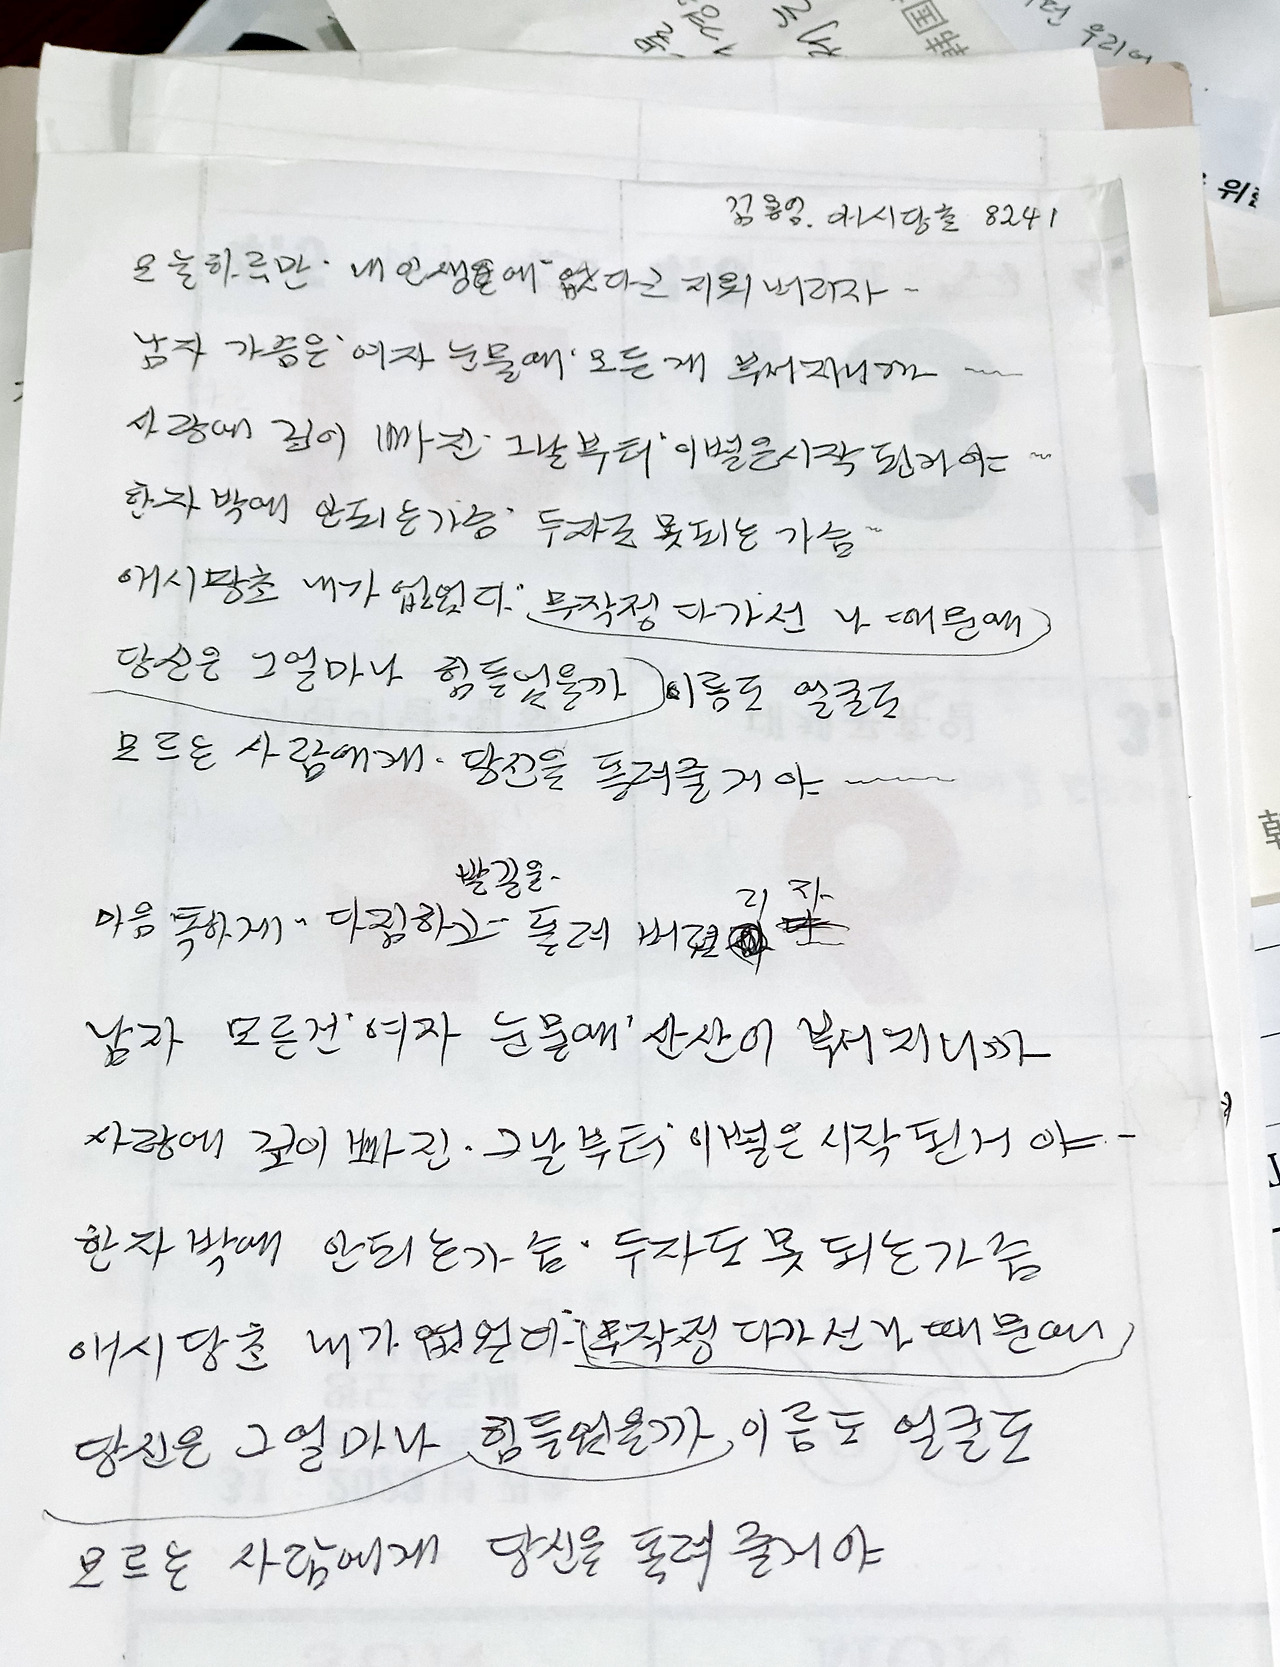 김용임. 애시당초 8241
오늘하루만· 내 인생에 없다고 지워 버리자~
남자 가슴은 여자 눈물에 모든게 부서지니까~
사랑에 깊이 빠진· 그날부터 이별은 시작 된거야~
한자 밖에 안되는 가슴· 두자도 못되는 가슴~
애시당초 내가 없었다· (무작정 다가선 나 때문에)
당신은 그얼마나 힘들었을까) 이름도 얼굴도
모르는 사람에게· 당신을 돌려줄거야~
발길을·
리 자
마음 독하게 다짐하고 돌려 버
남자 모든건 여자 눈물에 산산이 부서지니까
사랑에 깊이 빠진· 그날부터 이별은 시작 된거야-
한자 밖에 안되는 가슴· 두자도 못되는 가슴
애시당초 내가 없었다· (무작정 다가선 나 때문에)
당신은 그얼마나 힘들었을까, 이름도 얼굴도
모르는 사람에게 당신을 돌려줄거야